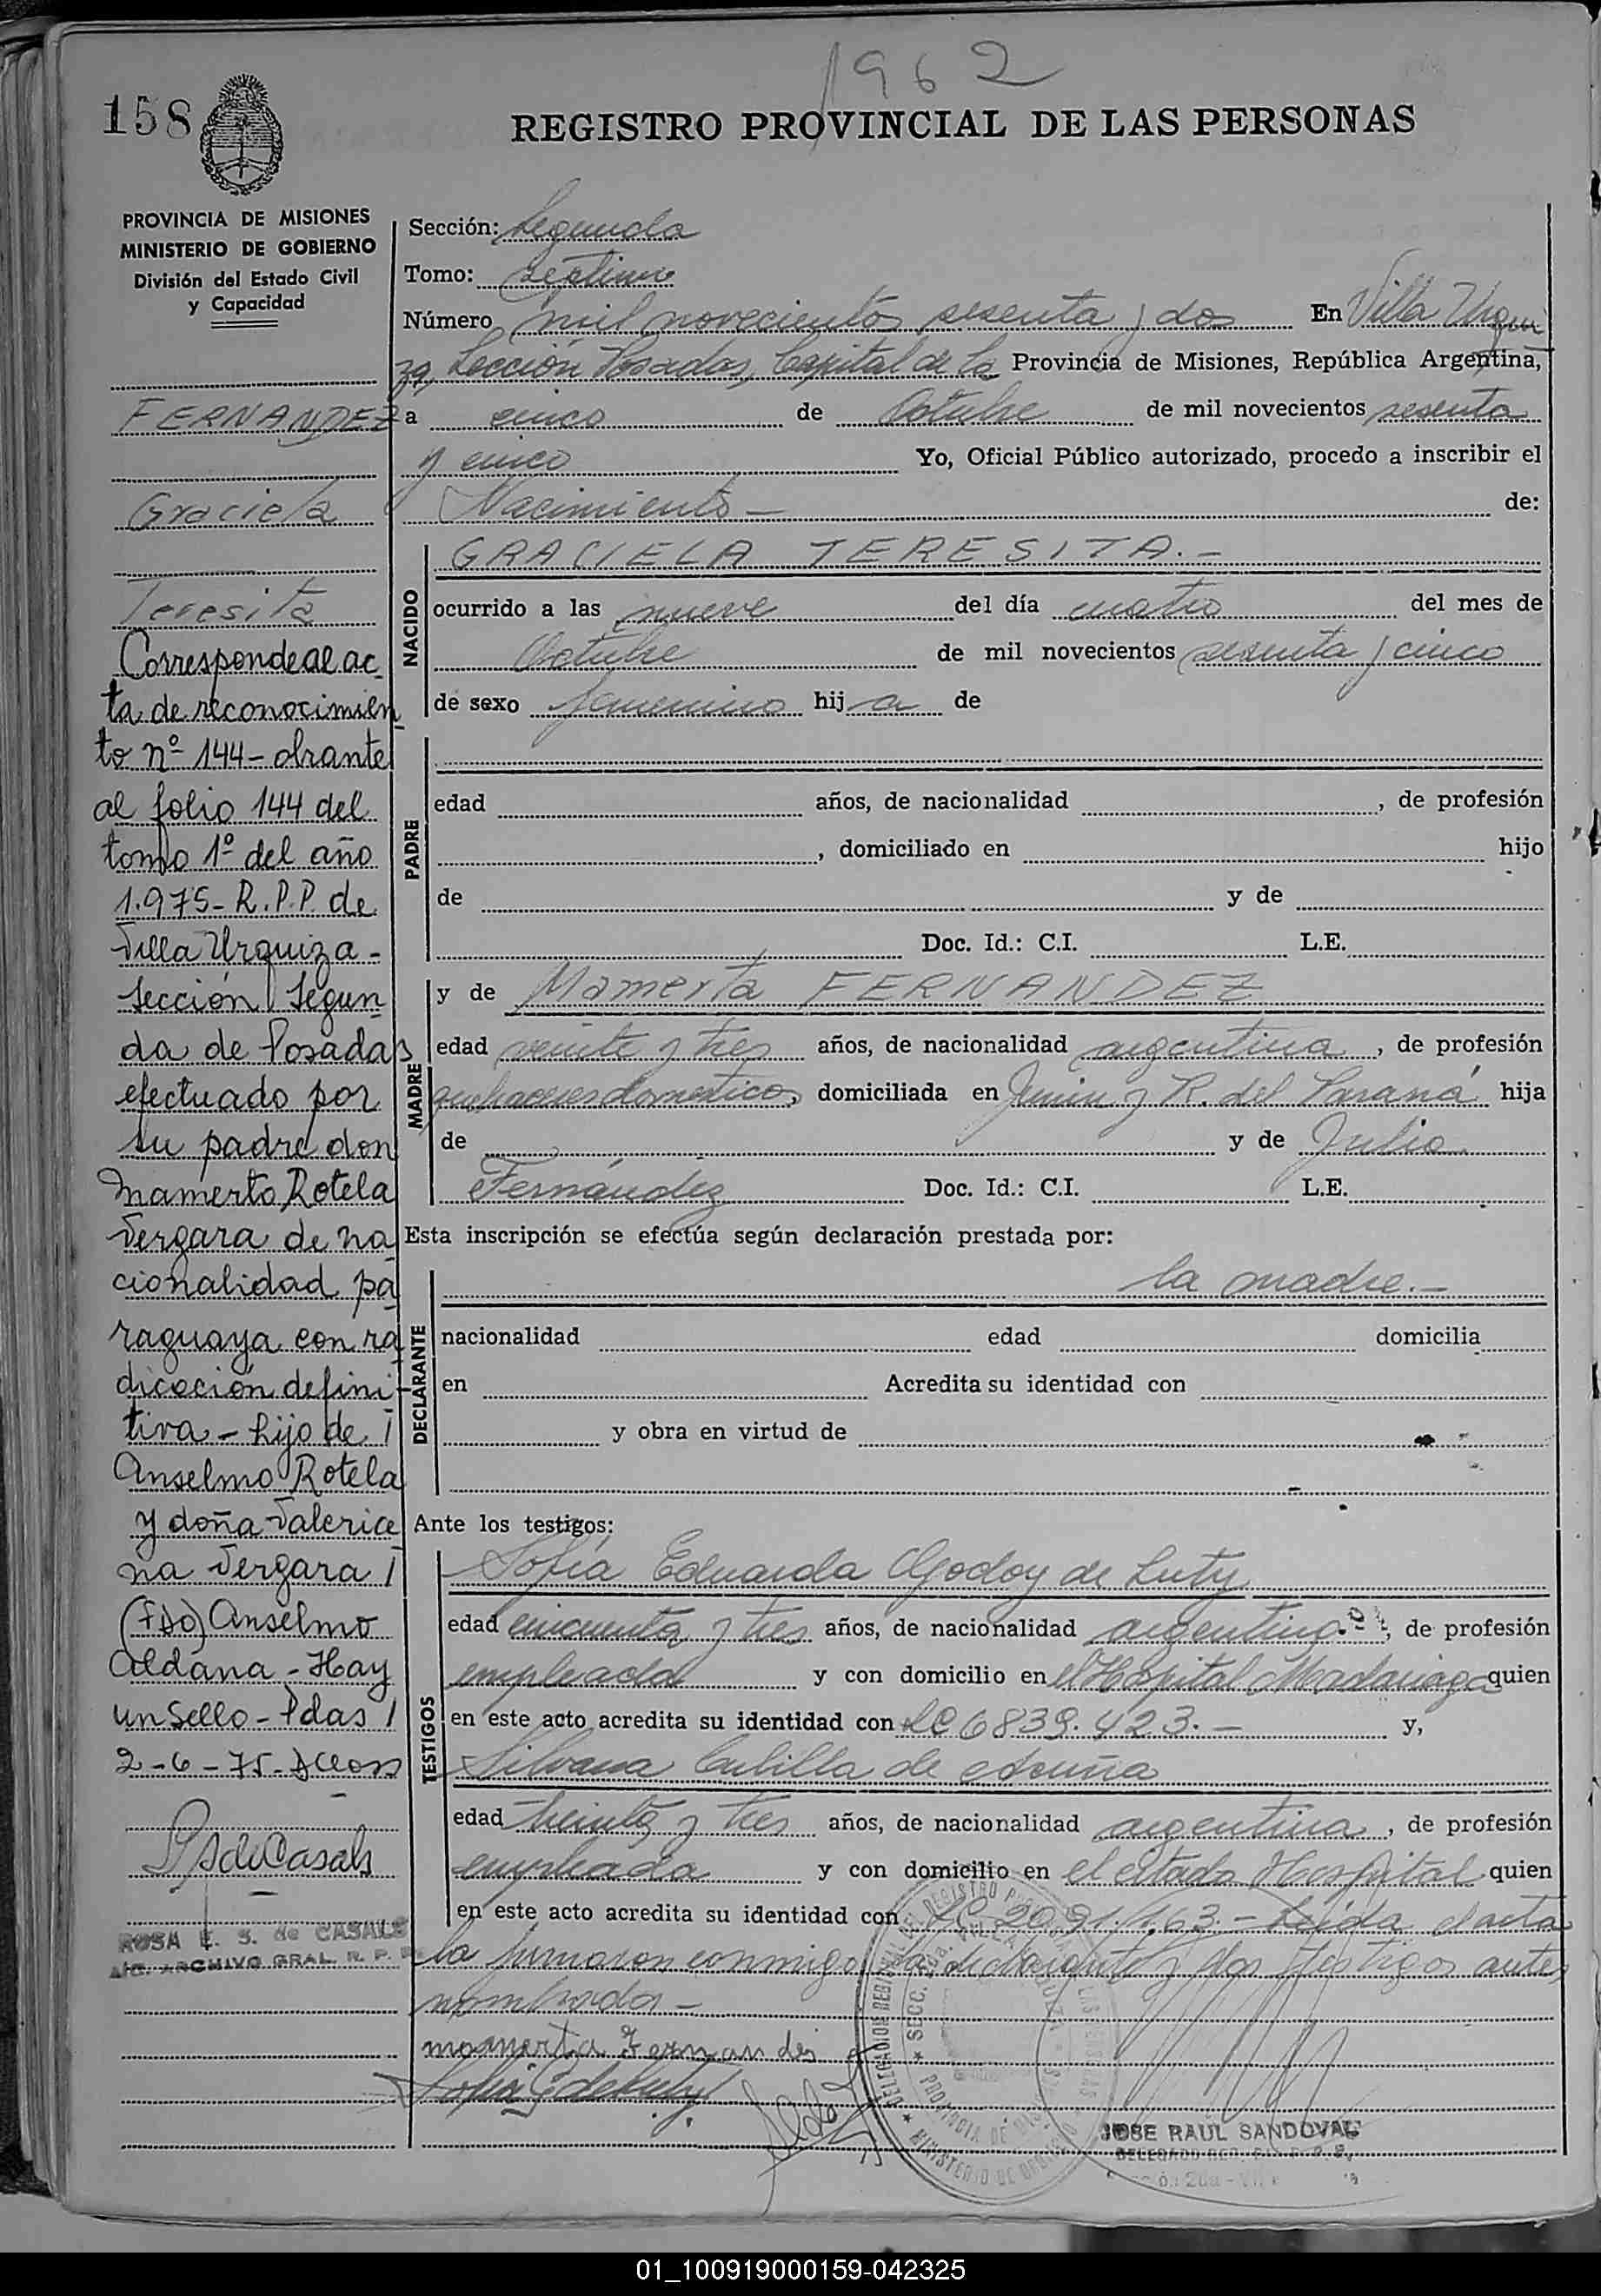 1962
158
REGISTRO PROVINCIAL DE LAS PERSONAS
PROVINCIA DE MISIONES
MINISTERIO DE GOBIERNO
División del Estado Civil
y Capacidad
FERNANDEZ
Graciela
Teresita
Corresponde al ac
ta de reconocimien
to nº 144 - obrante
al folio 144 del
tomo 1º del año
1.975 - R.P.P. de
Villa Urquiza -
Sección Segun
da de Posadas
efectuado por
su padre don
Mamerto Rotela
Vergara de na
cionalidad pa
raguaya con ra
dicación defini
tiva - hijo de
Anselmo Rotela
y doña Valerice
na Vergara
(Fdo) Anselmo
Aldana - Hay
un Sello - Pdas
2-6-75-
ROSA E. S. de CASALS
ARCHIVO GRAL. R. P. P.
Sección: Segunda
Tomo: septimo
Número mil novecientos sesenta y dos En Villa Urqui
za, Sección Posadas, Capital de la Provincia de Misiones, República Argentina,
a cinco de Octubre de mil novecientos sesenta
y cinco Yo, Oficial Público autorizado, procedo a inscribir el
Nacimiento - de:
NACIDO
GRACIELA TERESITA.-
ocurrido a las nueve del día cuatro del mes de
Octubre de mil novecientos sesenta y cinco
de sexo femenino hija de
PADRE
edad años, de nacionalidad , de profesión
, domiciliado en hijo
de y de
Doc. Id.: C.I. L.E.
MADRE
y de Mamerta FERNANDEZ
edad veinte y tres años, de nacionalidad argentina, de profesión
quehaceres domesticos, domiciliada en Junin y R. del Paraná hija
de y de Julio
Fernández Doc. Id.: C.I. L.E.
Esta inscripción se efectúa según declaración prestada por:
la madre.-
DECLARANTE
nacionalidad edad domicilia
en Acredita su identidad con
y obra en virtud de
Ante los testigos:
TESTIGOS
Sofía Eduarda Godoy de Luty
edad cincuenta y tres años, de nacionalidad argentina, de profesión
empleada y con domicilio en el Hospital Madariaga quien
en este acto acredita su identidad con LC 6839.423.- y,
Silvana Cubilla de Acuña
edad treinta y tres años, de nacionalidad argentina, de profesión
empleada y con domicilio en el citado Hospital quien
en este acto acredita su identidad con LC 2091.163.- Leída el acta
la firmaron conmigo la declarante y los testigos antes
nombrados -
mamerta Fernandes
JOSE RAUL SANDOVAL
01_100919000159-042325